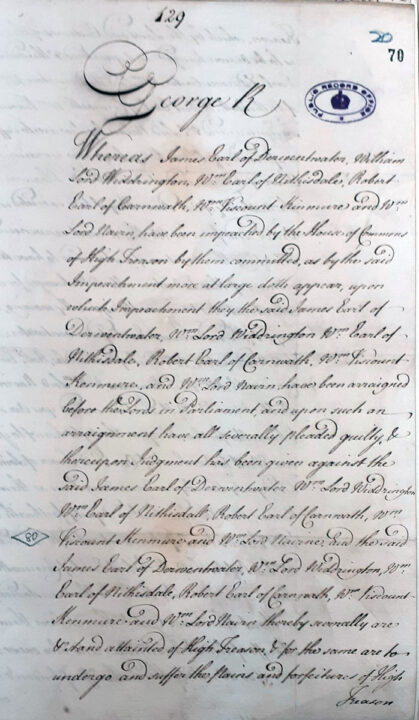 129
20
70
George R
PUBLIC RECORD OFFICE
Whereas James Earl of Derwentwater, William
Lord Widdrington, Wm Earl of Nithisdale, Robert
Earl of Carnwath, Wm Viscount Kenmure and Wm
Lord Nairn, have been impeached by the House of Commons
of High Treason by them committed, as by the said
Impeachment more at large doth appear, upon
which Impeachment they the said James Earl of
Derwentwater, Wm Lord Widdrington Wm Earl of
Nithisdale, Robert Earl of Carnwath, Wm Viscount
Kenmure, and Wm Lord Nairn have been arraigned
before the Lords in Parliament, and upon such an
arraignment have all severally pleaded guilty, &
thereupon Judgment has been given against the
said James Earl of Derwentwater Wm Lord Widdrington
Wm Earl of Nithisdale Robert Earl of Carnwath, Wm
80
Viscount Kenmure and Wm Lord Nairne, And the said
James Earl of Derwentwater, Wm Lord Widdrington, Wm
Earl of Nithisdale, Robert Earl of Carnwath Wm Viscount
Kenmure and Wm Lord Nairn thereby severally are
& stand attainted of High Treason, & for the same are to
undergo and suffer the Pains and forfeitures of High
Treason